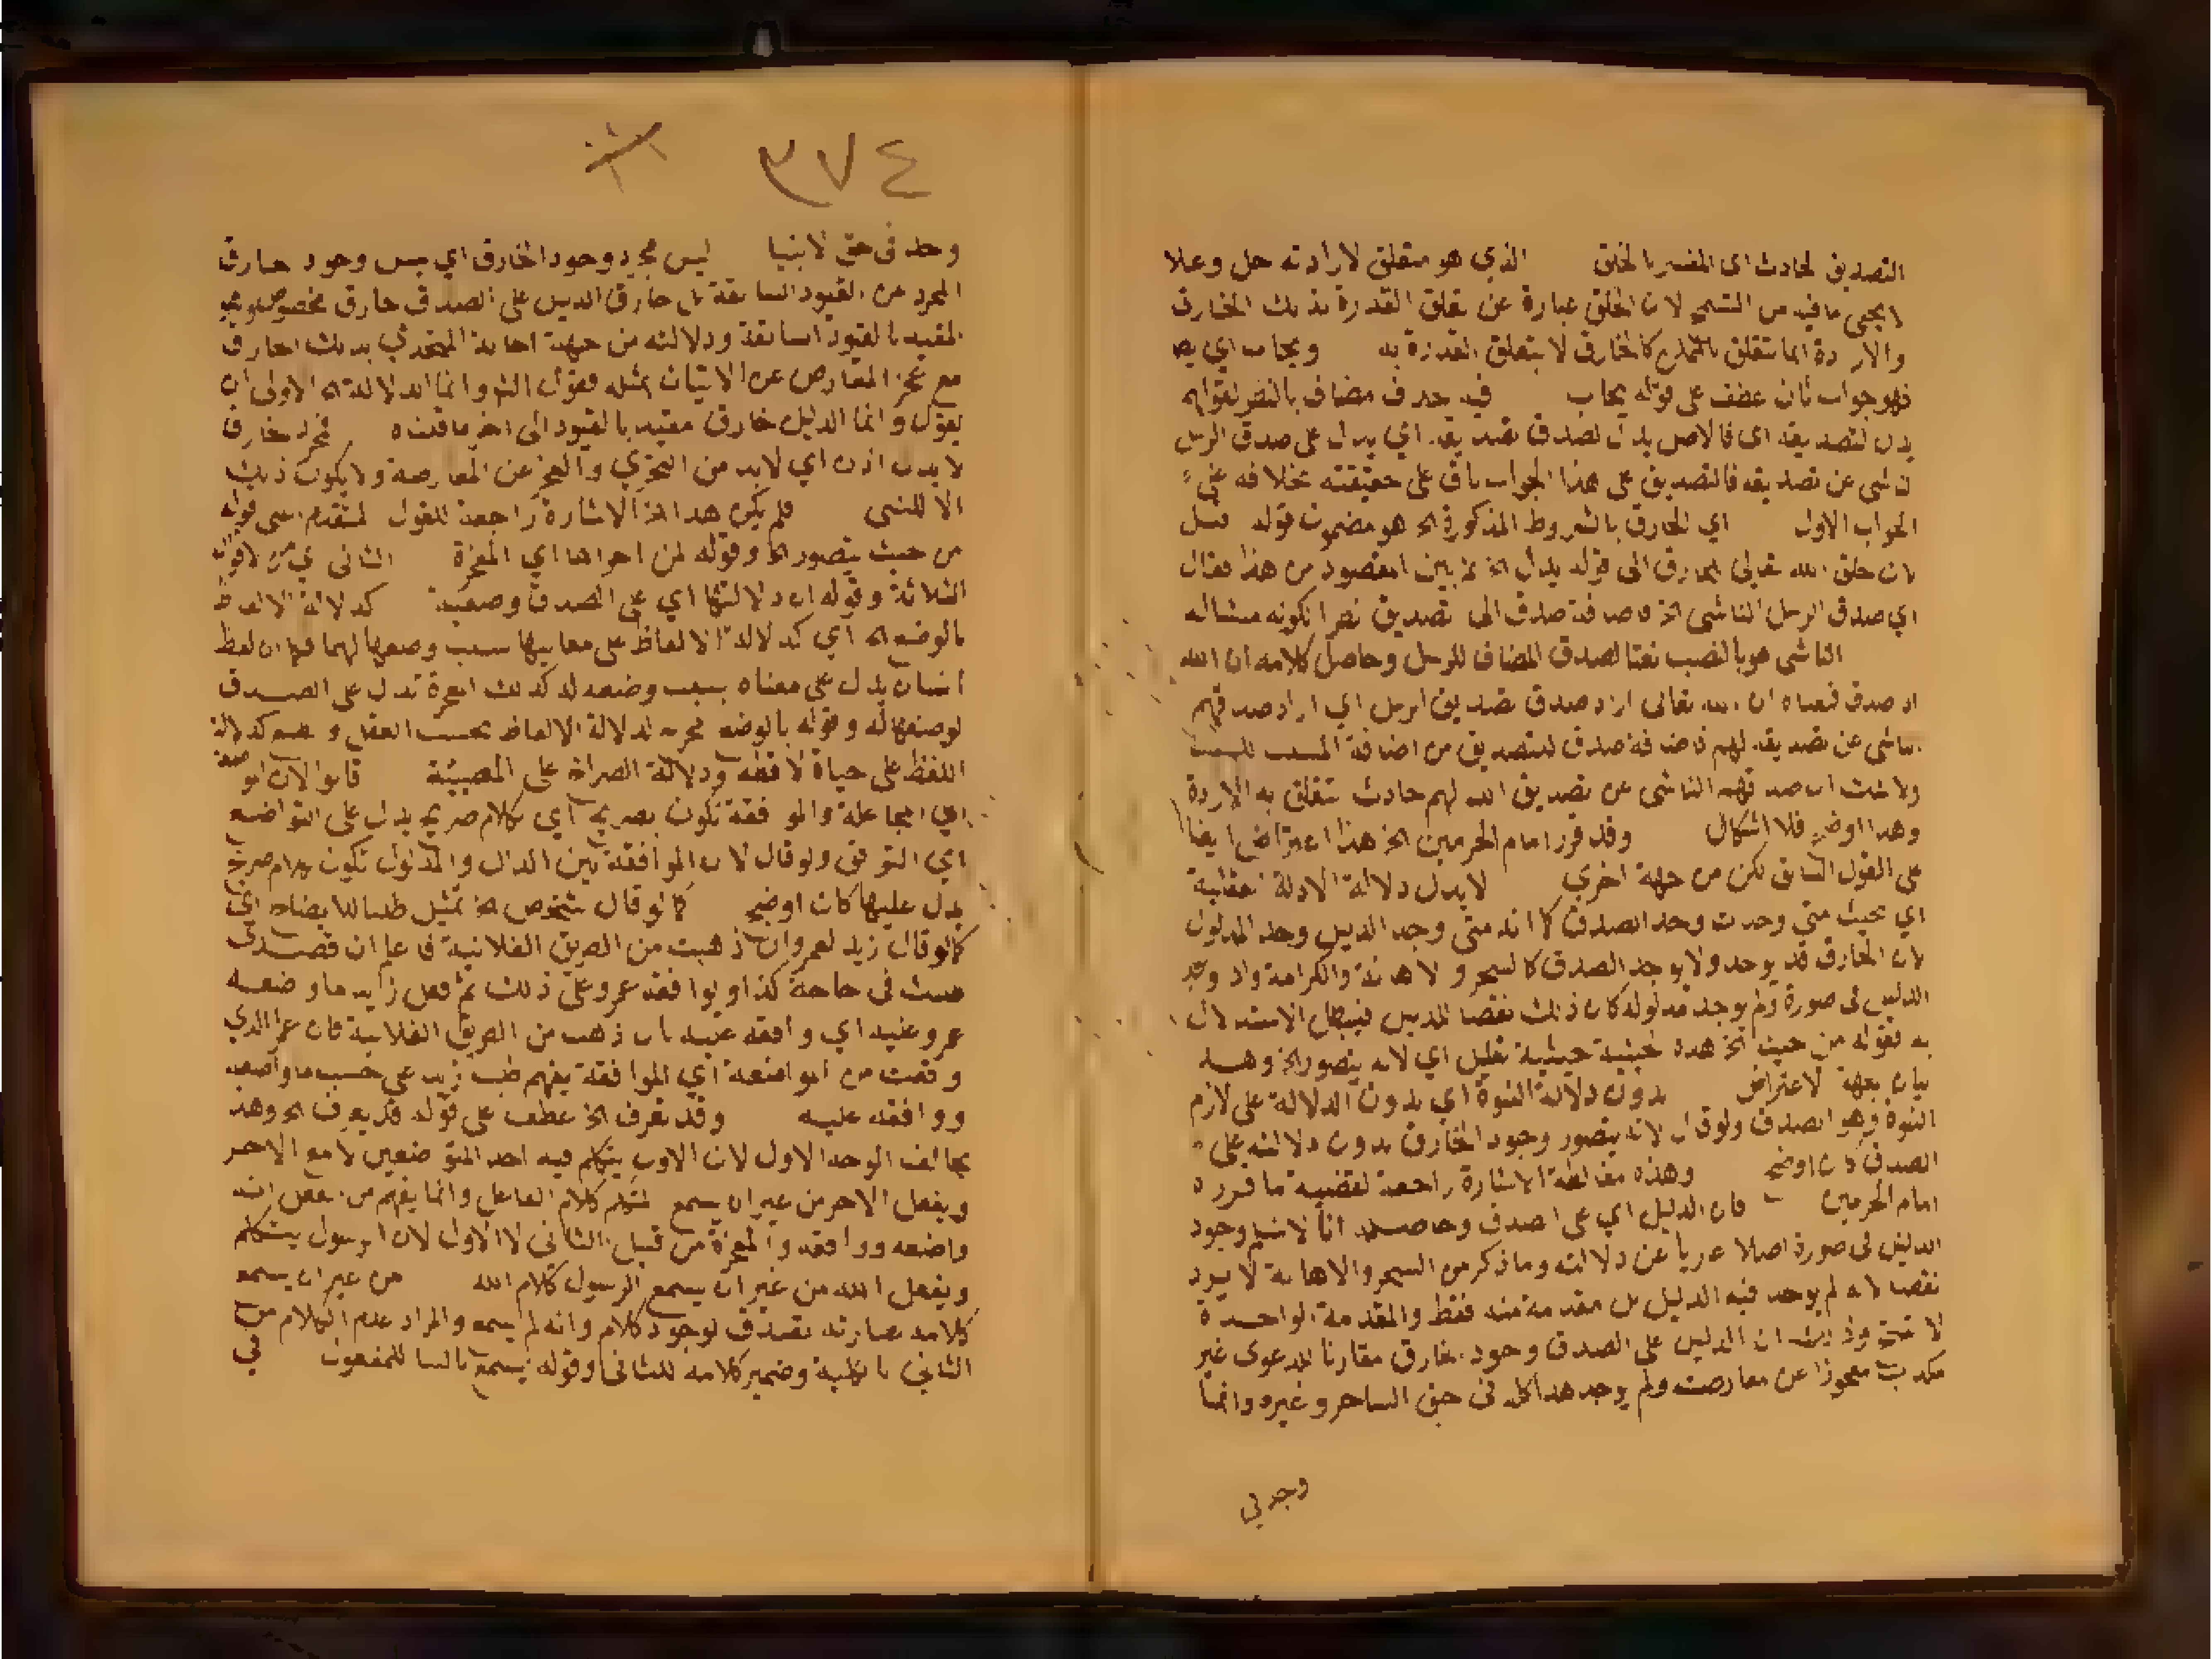 التصديق الحادث اى المفسر بالخلق الذي هو متعلق لارادته جل وعلا
لايخفى ما فيه من التسمح لان الخلق عبارة عن تعلق القدرة بذلك الخارق
والارادة انما تتعلق بالممكن كالخارق لا بتعلق القدرة به ويجاب اي بها
فهو جواب ثان عطف على قوله يجاب فيه حذف مضاف بالنظر لقولهم
يدل لتصديقه اى فالاصل يدل لصدق تصديقه اي يدل على صدق الرسل
ناشى عن تصديقه فالتصديق على هذا الجواب باق على حقيقته بخلافه على
الجواب الاول اي الخارق بالشروط المذكورة الخ هو مضمون قوله قبل
بان خلق الله تعالى الخارق الى قوله يدل الخ ثم بين المقصود من هذا فقال
اي صدق الرسل الناشى الخ فاضافة صدق الى تصديق نظرا لكونه منشاله
الناشى هو بالنصب نعتا لصدق المضاف للرسل وحاصل كلامه ان الله
اد صدق فمعناه ان الله تعالى اراد صدق تصديق الرسل اي اراد صدقهم
الناشى عن تصديقه لهم فاضافة صدق للتصديق من اضافة المسبب للسبب
ولا شك ان صدقهم الناشى عن تصديق الله لهم حادث تتعلق به الارادة
وهذا اوضح فلا اشكال وقد قرر امام الحرمين الخ هذا اعتراض ايضا
على القول السابق لكن من جهة اخري لا يدل دلالة الادلة العقلية
اي بحيث متى وجدت وجد الصدق كما انه متى وجد الدليل وجد المدلول
لان الخارق قد يوجد ولا يوجد الصدق كالسحر والاهانة والكرامة واذ وجد
الدليل فى صورة ولم يوجد مدلوله كان ذلك نقضا للدليل فيبطل الاستدلال
به فقوله من حيث الخ هذه الحيثية حيثية تعليل اي لانه يتصور الخ وهـ
بيان لجهة الاعتراض بدون دلالة النبوة اي بدون الدلالة على لازم
النبوة وهو الصدق ولو قال لانه يتصور وجود الخارق بدون دلالته على
الصدق كان اوضح وهذه مغالطة الاشارة راجعة لقضية ما قرره
امام الحرمين فان الدليل اي على الصدق وحاصله انا لا نسلم وجود
الدليل فى صورة اصلا عاريا عن دلالته وما ذكر من السحر والاهانة لا يرد
نقضا لانه لم يوجد فيه الدليل بل مقدمة منه فقط والمقدمة الواحدة
لا تنتج وذلك ان الدليل على الصدق وجود خارق مقارنا للدعوى غير
مكذب معجوزا عن معارضته ولم يوجد هذا كله فى حق الساحر وغيره وانما
وجد في
٣٧٤
وجد فى حق الانبيا ليس مجرد وجود الخارق اي ليس وجود خارق
المجرد عن القيود السابقة بل خارق الدليل على الصدق خارق مخصوص وهو
المقيد بالقيود السابقة ودلالته من جهة اجابة المتحدي بذلك الخارق
مع عجز المعارض عن الاتيان بمثله فقول الش وانما الدلالة الخ الاولى ان
يقول وانما الدليل خارق مقيد بالقيود الى اخر ما قلناه فمجرد خارق
لا يدل اذن اي لابد من التحدي والعجز عن المعارضة ولا يكون ذلك
الا للنبى فلم يكن هذا الخ الاشارة راجعة للقول المتقدم اعنى قوله
من حيث يتصور الخ وقوله لمن اجراها اي المعجزة الثانى اي من الاقوال
الثلاثة وقوله ان دلالتها اي على الصدق وضعية كدلالة الالفاظ
بالوضع الخ اي كدلالة الالفاظ على معانيها بسبب وضعها لها فكما ان لفظ
انسان يدل على معناه بسبب وضعه له كذلك المعجزة تدل على الصدق
لوضعها له وقوله بالوضع مخرج لدلالة الالفاظ بحسب العقل والطبع كدلالة
اللفظ على حياة لافظه ودلالة الصراخ على المصيبة قالوا لان المواضعة
اي المجاعلة والموافقة تكون بصريح اي بكلام صريح يدل على التواضع
اي التوافق ولو قال لان الموافقة بين الدال والمدلول تكون بكلام صريح
يدل عليها كان اوضح كما لو قال شخص الخ تمثيل طلبا للايضاح اي
كما لو قال زيد لعمرو ان ذهبت من الطريق الفلانية فاعلم ان قصدى
منك فى حاجة كذا ويوافقه عمرو على ذلك ثم فعل زيد ما واضعه
عمرو عليه اي وافقه عليه بان ذهب من الطريق الفلانية فان عمرا الذي
وقعت منه المواضعة اي الموافقة يفهم طلب زيد على حسب ما واضعه
ووافقه عليه وقد تعرف الخ عطف على قوله قد يعرف الخ وهذا
يخالف الوجه الاول لان الاول يتكلم فيه احد المتواضعين لا مع الاخر
ويفعل الاخر من غير ان يسمع المتكلم كلام الفاعل وانما يفهم من الفعل انه
واضعه ووافقه والمعجزة من قبيل الثانى لا الاول لان الرسول يتكلم
ويفعل الله من غير ان يسمع الرسول كلام الله من غير ان يسمع
كلامه عبارته تصدق لوجود كلام وانه لم يسمع والمراد عدم الكلام من
الثانى بالكلية وضمير كلامه للثانى وقوله يسمع بالبنا للمفعول في